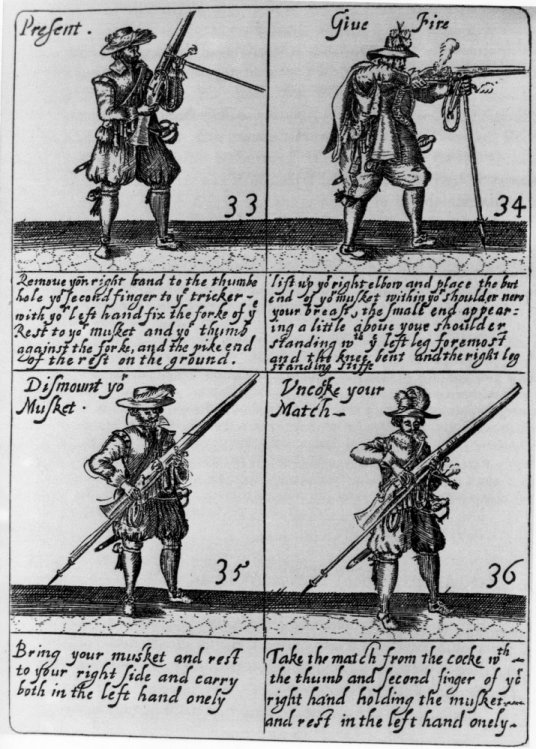 Present .
33
Remove yor right hand to the thumbe
hole yor second finger to ye tricker -
with yor left hand fix the forke of ye
Rest to yor musket and yor thumb
against the forke, and the pike end
of the rest on the ground .
Give Fire
34
lift up yor right elbow and place the but
end of yor musket within yor shoulder nero
your breast, the small end appear=
ing a litile above youe shoulder
standing wth ye left leg foremost
and the knee bent and the right leg
standing stiffe
Dismount yor
Musket .
35
Bring your musket and rest
to your right side and carry
both in the left hand onely
Vncoke your
Match -
36
Take the match from the cocke wth -
the thumb and second finger of yor
right hand holding the musket
and rest in the left hand onely -